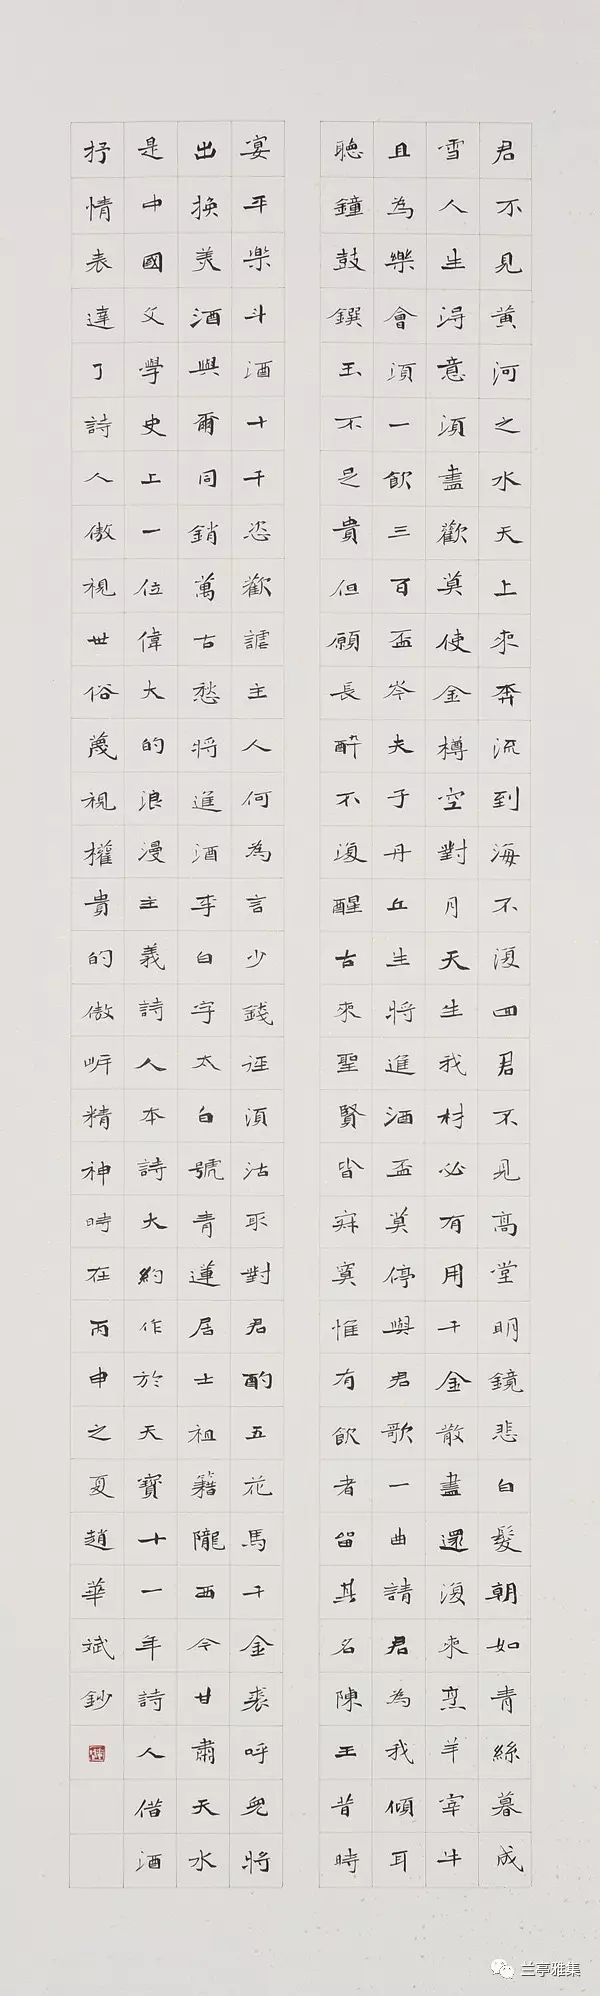 君不見黃河之水天上來奔流到海不復回君不見高堂明鏡悲白髮朝如青絲暮成
雪人生得意須盡歡莫使金樽空對月天生我材必有用千金散盡還復來烹羊宰牛
且為樂會須一飲三百盃岑夫子丹丘生將進酒盃莫停與君歌一曲請君為我傾耳
聽鐘鼓饌玉不足貴但願長醉不復醒古來聖賢皆寂寞惟有飲者留其名陳王昔時
宴平樂斗酒十千恣歡謔主人何為言少錢逕須沽取對君酌五花馬千金裘呼兒將
出換美酒與爾同銷萬古愁將進酒李白字太白號青蓮居士祖籍隴西今甘肅天水
是中國文學史上一位偉大的浪漫主義詩人本詩大約作於天寶十一年詩人借酒
抒情表達了詩人傲視世俗蔑視權貴的傲岸精神時在丙申之夏趙華斌鈔
兰亭雅集